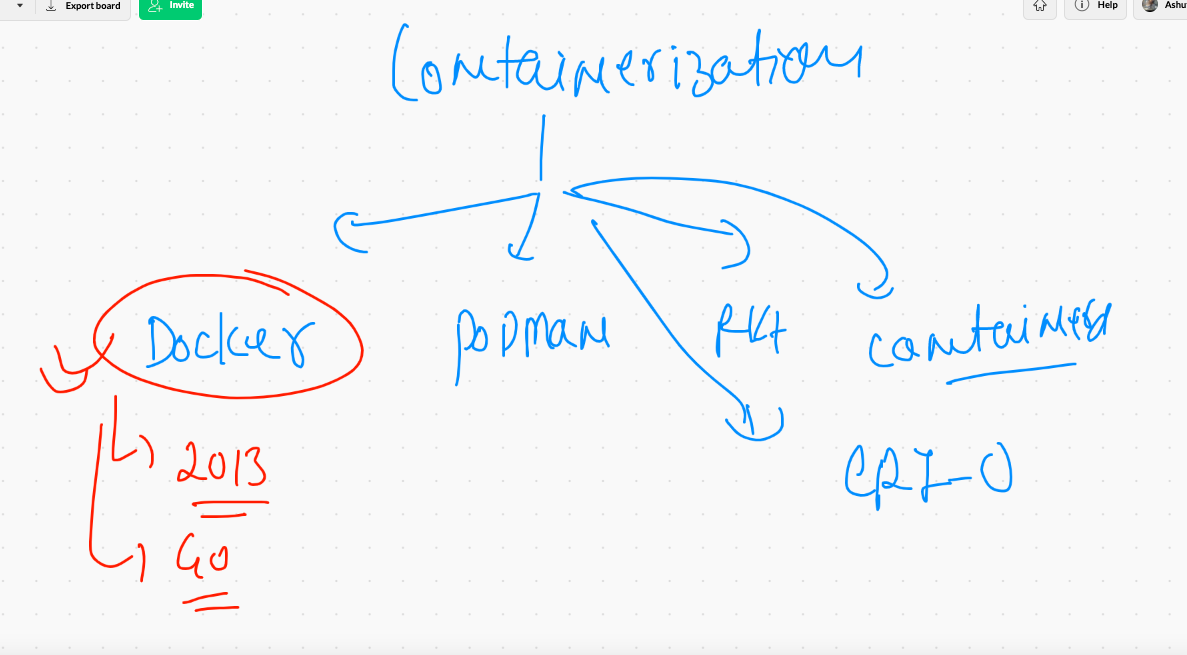 Export board
Invite
Help
Ashu
Containerization
Docker
PODMAN
RKt
containerd
CRI-O
2013
GO